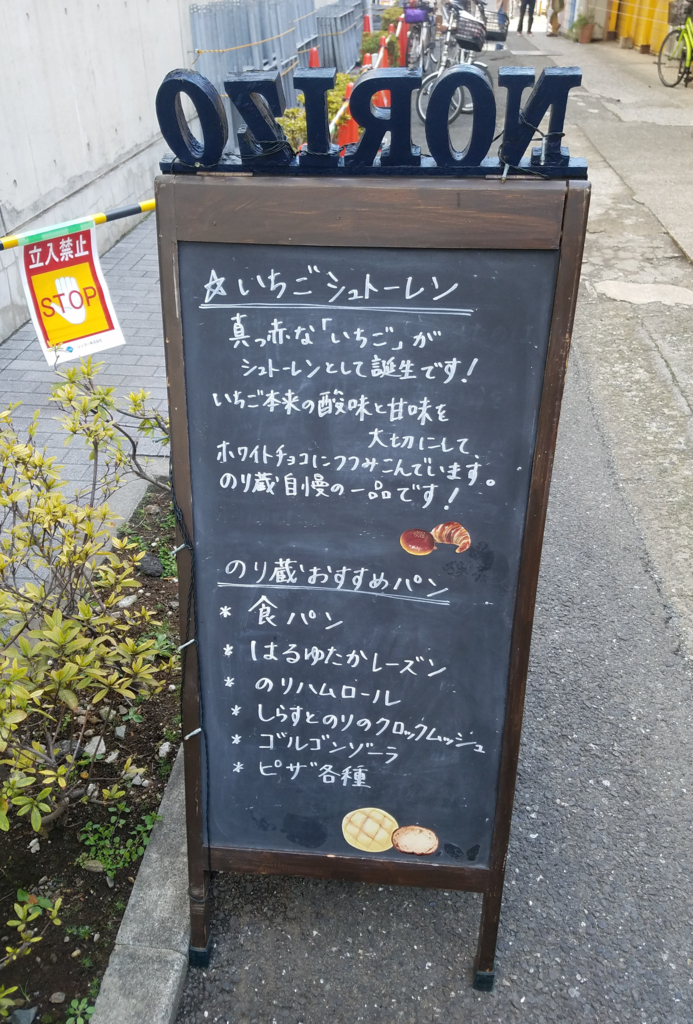 NORIZO
立入禁止
STOP
☆いちごシュトーレン
真っ赤な「いちご」が
シュトーレンとして誕生です!
いちご本来の酸味と甘味を
大切にして、
ホワイトチョコにつつみこんでいます。
のり蔵自慢の一品です!
のり蔵おすすめパン
* 食パン
* はるゆたかレーズン
* のりハムロール
* しらすとのりのクロックムッシュ
* ゴルゴンゾーラ
* ピザ各種